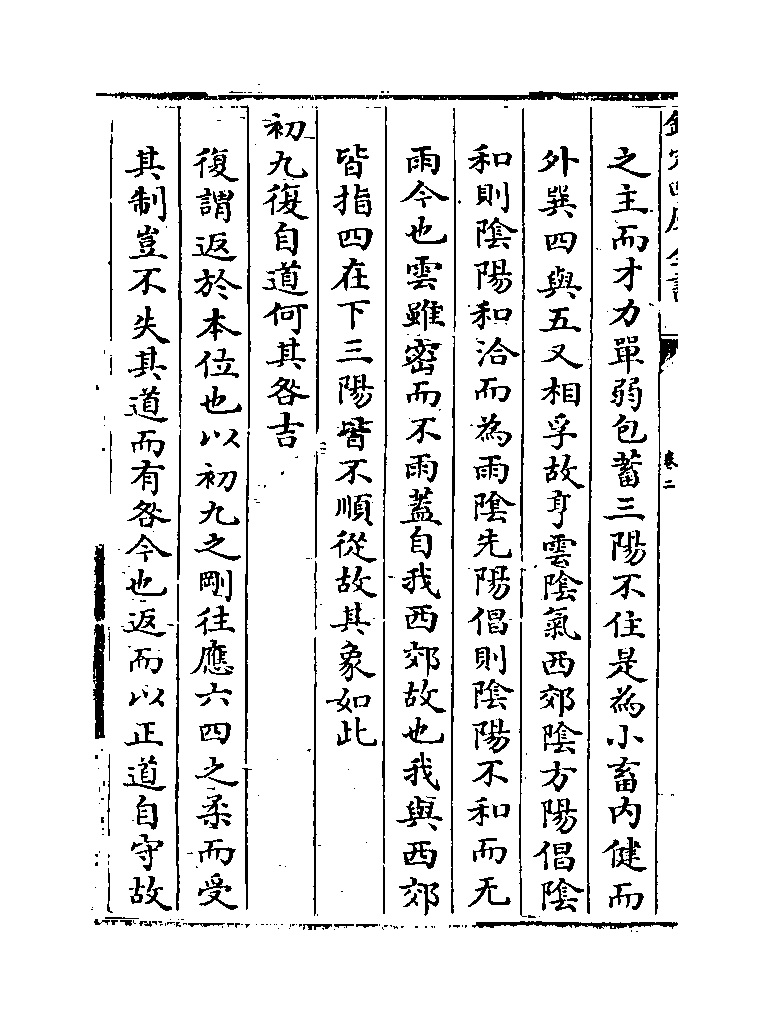 欽定四庫全書
卷二
之主而才力單弱包蓄三陽不住是為小畜內健而
外巽四與五又相孚故亨雲陰氣西郊陰方陽倡陰
和則陰陽和洽而為雨陰先陽倡則陰陽不和而无
雨今也雲雖密而不雨蓋自我西郊故也我與西郊
皆指四在下三陽皆不順從故其象如此
初九復自道何其咎吉
復謂返於本位也以初九之剛往應六四之柔而受
其制豈不失其道而有咎今也返而以正道自守故